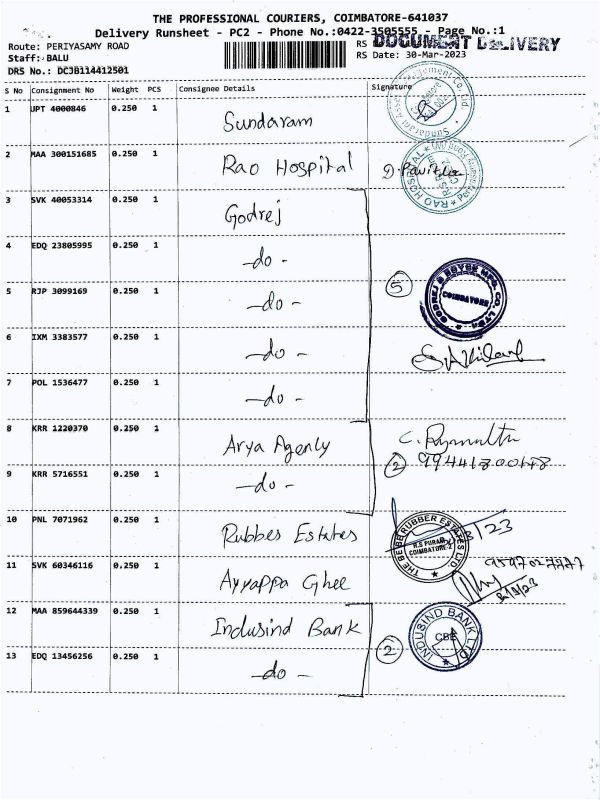 THE PROFESSIONAL COURIERS, COIMBATORE-641037
Delivery Runsheet - PC2 - Phone No.:0422-3505555 - Page No.:1
Route: PERIYASAMY ROAD RS DOCUMENT DELIVERY
Staff: BALU RS Date: 30-Mar-2023
DRS No.: DCJB114412501
S No Consignment No Weight PCS Consignee Details Signature
1 JPT 4000846 0.250 1 Sundaram
2 MAA 300151685 0.250 1 Rao Hospital D. Pavithra
RAO HOSPITAL
3 SVK 40053314 0.250 1 Godrej
4 EDQ 23805995 0.250 1 -do-
5 RJP 3099169 0.250 1 -do- 5
GODREJ & BOYCE MFG. CO. LTD. COIMBATORE
6 IXM 3383577 0.250 1 -do-
7 POL 1536477 0.250 1 -do-
8 KRR 1220370 0.250 1 Arya Agenly
2 9944180068
9 KRR 5716551 0.250 1 -do-
10 PNL 7071962 0.250 1 Rubbes Estates
THE BEBE RUBBER ESTATES LTD R.S PURAM COIMBATORE-2 /3/23
11 SVK 60346116 0.250 1 Ayyappa Ghee
12 MAA 859644339 0.250 1 Indusind Bank
INDUSIND BANK LTD CBE
2
13 EDQ 13456256 0.250 1 -do-